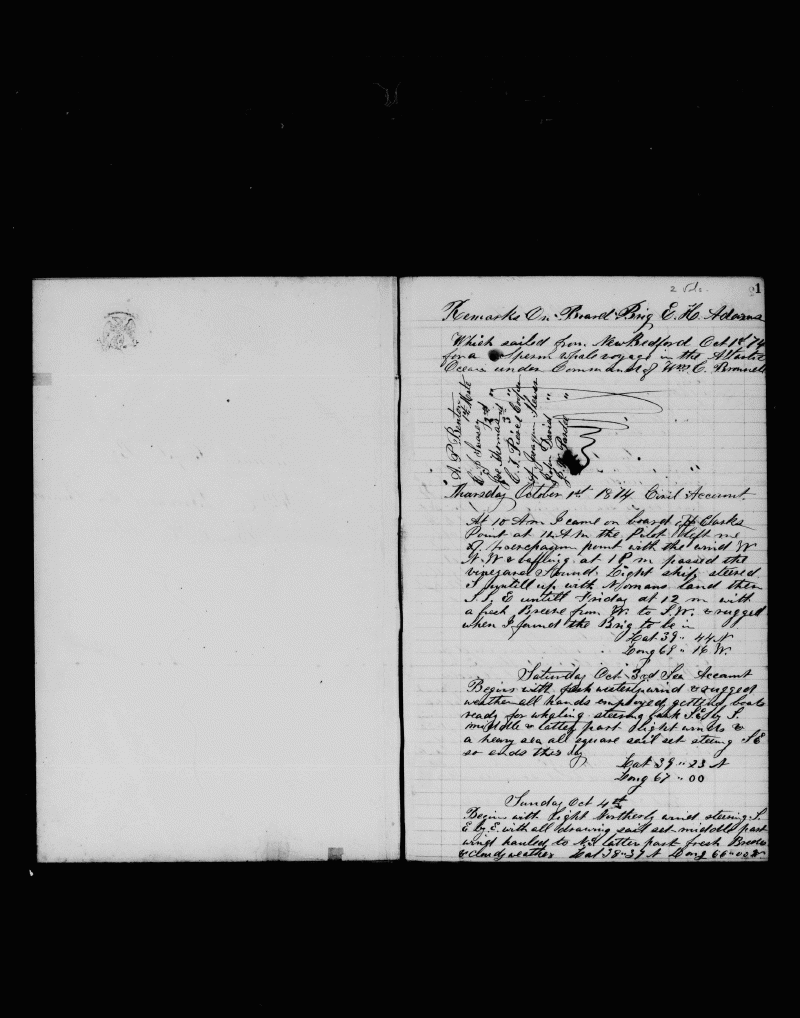 2 vols.
1
Remarks On Board Brig E. H. Adams
Which sailed from New Bedford Oct 1st 74
for a sperm whale voyage in the Atlantic
Ocean under Command of Wm C. Brownell
A. P. Benton 1st Mate
2nd "
Joe Thomas
3rd "
C. T. Peirce Cooper
Joaquin
John David "
"
Thursday October 1st 1874 Civil Account
At 10 Am I came on board off Clarks
Point at 12 A M the Pilot left me
point with the wind W
N. W & baffling. at 1 P m passed the
vineyard Sound Light ship steered
S untill up with Nomans Land then
S. S. E untill Friday at 12 m with
a fresh Breeze from W. to S. W. & rugged
when I found the Brig to be in
Lat 39 " 44 N
Long 68 " 16 W.
Saturday Oct 3rd Sea Account
Begins with fresh westerly wind & rugged
weather all hands employed getting boats
ready for whaling steering S. E. by S.
middle & latter part light winds &
a heavy sea all square sail set steering S E
so ends this day
Lat 39 " 23 N
Long 67 " 00
Sunday Oct 4th
Begins with light Northerly wind steering S.
E by E. with all drawing sail set middle part
wind hauled to latter part fresh Breeze
& cloudy weather Lat 38 " 39 N Long 66 " 00 W